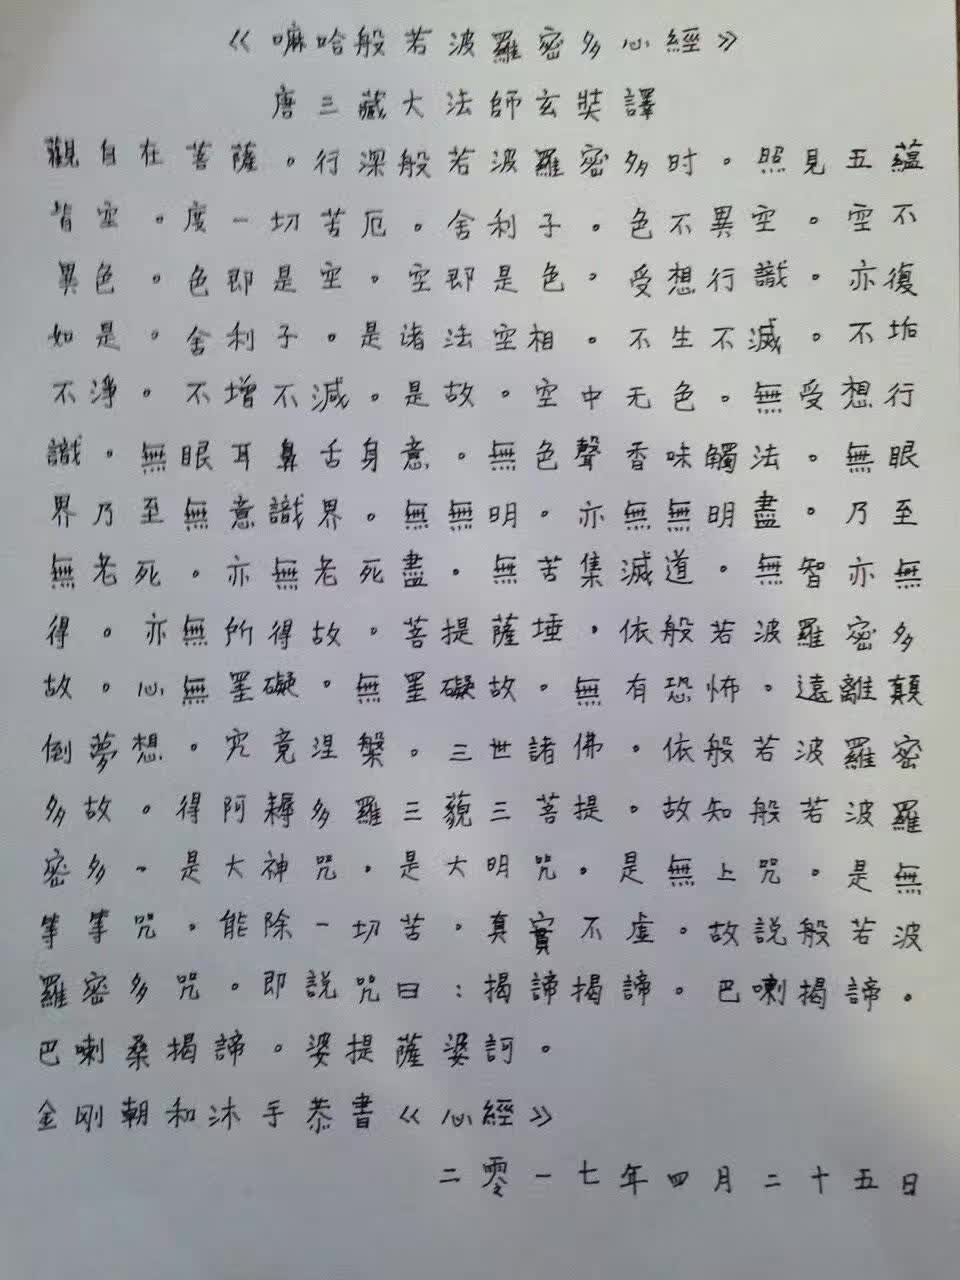 《嘛哈般若波羅密多心經》
唐三藏大法師玄奘譯
觀自在菩薩。行深般若波羅密多时。照見五蘊
皆空。度一切苦厄。舍利子。色不異空。空不
異色。色即是空。空即是色。受想行識。亦復
如是。舍利子。是诸法空相。不生不滅。不垢
不淨。不增不減。是故。空中无色。無受想行
識。無眼耳鼻舌身意。無色聲香味觸法。無眼
界乃至無意識界。無無明。亦無無明盡。乃至
無老死。亦無老死盡。無苦集滅道。無智亦無
得。亦無所得故。菩提薩埵。依般若波羅密多
故。心無罣礙。無罣礙故。無有恐怖。遠離顛
倒夢想。究竟涅槃。三世諸佛。依般若波羅密
多故。得阿耨多羅三藐三菩提。故知般若波羅
密多。是大神咒。是大明咒。是無上咒。是無
等等咒。能除一切苦。真實不虛。故説般若波
羅密多咒。即説咒曰:揭諦揭諦。巴喇揭諦。
巴喇桑揭諦。婆提薩婆訶。
金刚朝和沐手恭書《心經》
二零一七年四月二十五日